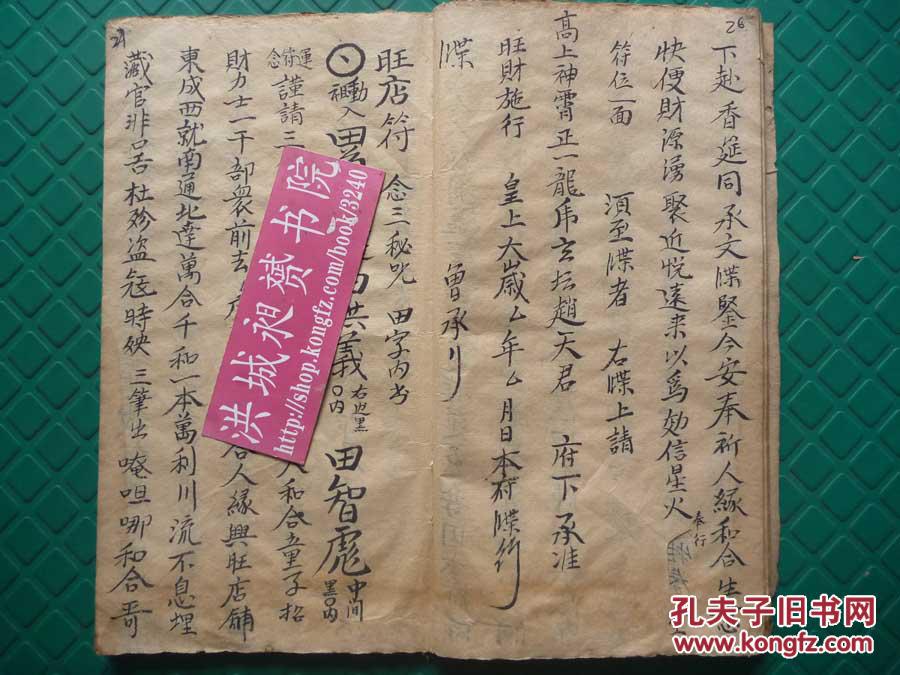 26
下赴香筵同承文牒鑒今安奉祈人緣和合生意
快便財源湧聚近悦遠来以爲効信星火奉行
符位一面 須至牒者 右牒上請
高上神霄正一龍虎玄坛趙天君 府下承准
旺財施行 皇上太嵗厶年厶月日本府牒行
牒 曾承行
旺店符 念三秘咒 田字内书
勳入 田 洪義 右 黑口内 田智彪 中间黑口内
運符念 謹請三 人和合童子招
財力士一干部衆前去 合人緣興旺店舖
東成西就南通北達萬合千和一本萬利川流不息埋
藏官非口舌杜殄盗寇時殃三筆出唵呾哪和合哥
洪城昶赟书院
http://shop.kongfz.com/book/3240
孔夫子旧书网
www.kongfz.com